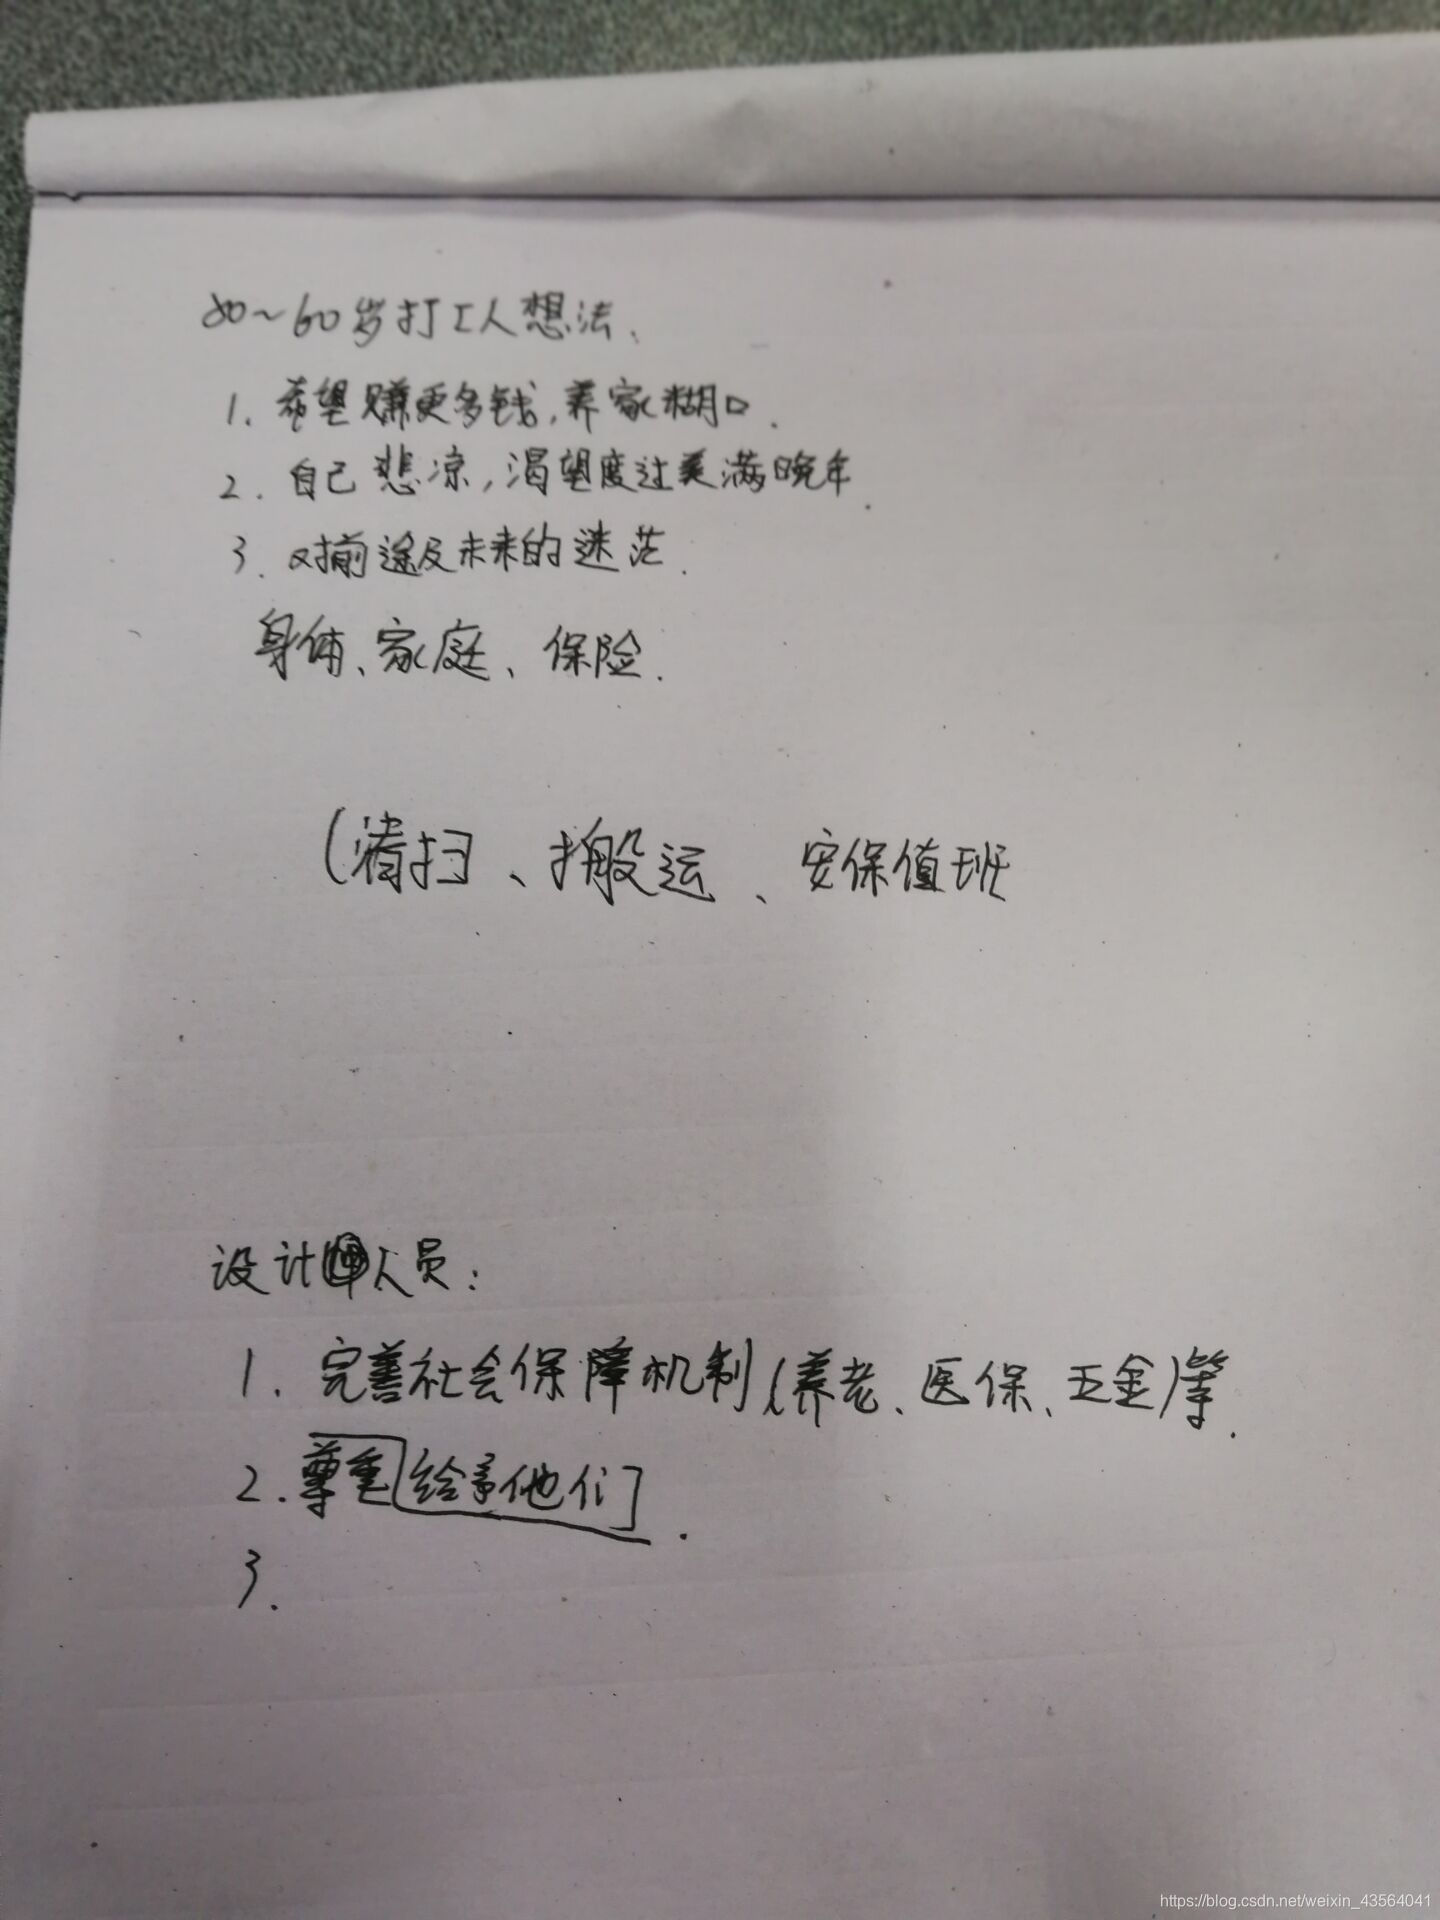 80~60岁打工人想法、
1. 希望赚更多钱,养家糊口.
2. 自己悲凉,渴望度过美满晚年.
3. 对前途及未来的迷茫.
身体、家庭、保险.
(清扫、搬运、安保值班
设计人员:
1. 完善社会保障机制(养老、医保、五金)等.
2. 尊重[给予他们].
3.
https://blog.csdn.net/weixin_43564041